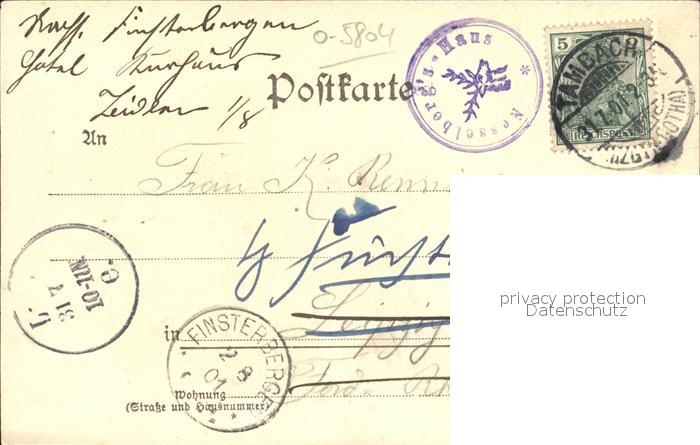 Nach Finsterbergen
Hotel Kurhaus
Zeidler 1/8
0-5804
Postkarte
Nesselberg's-Haus *
5
REICHSPOST
TAMBACH
(HZGT. GOTHA)
An
Frau K. Renn
Finst
Leipzig
in
L.
31 7
10-11N
FINSTERBERGEN
2 8
01
Wohnung
(Straße und Hausnummer)
privacy protection
Datenschutz